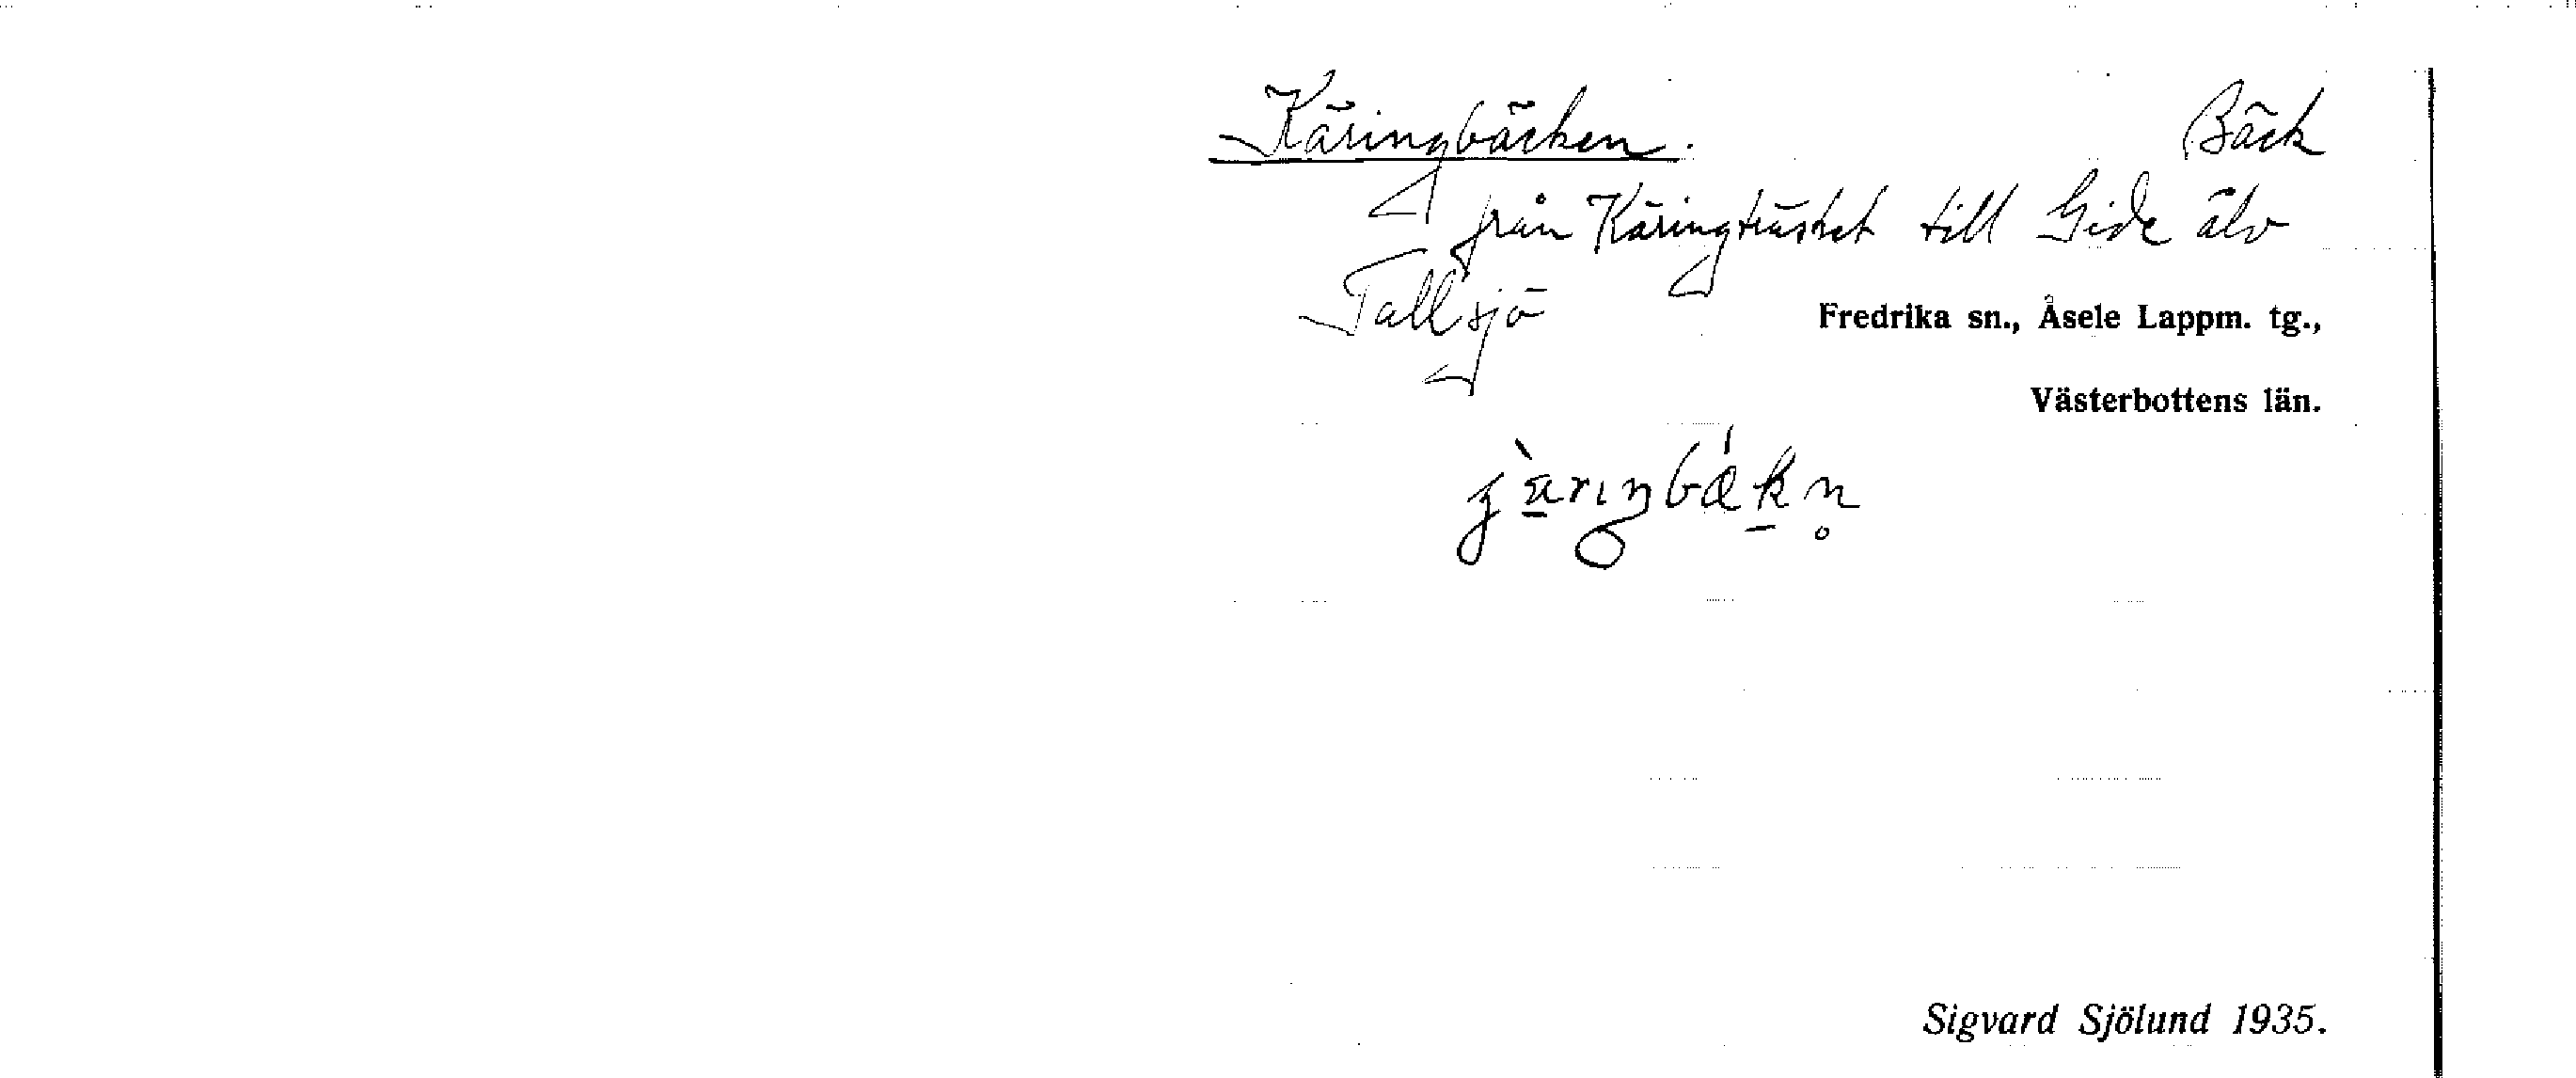 Käringbäcken. Bäck
från Käringträsket till Gide älv
Tallsjö
Fredrika sn., Åsele Lappm. tg.,
Västerbottens län.
Sigvard Sjölund 1935.